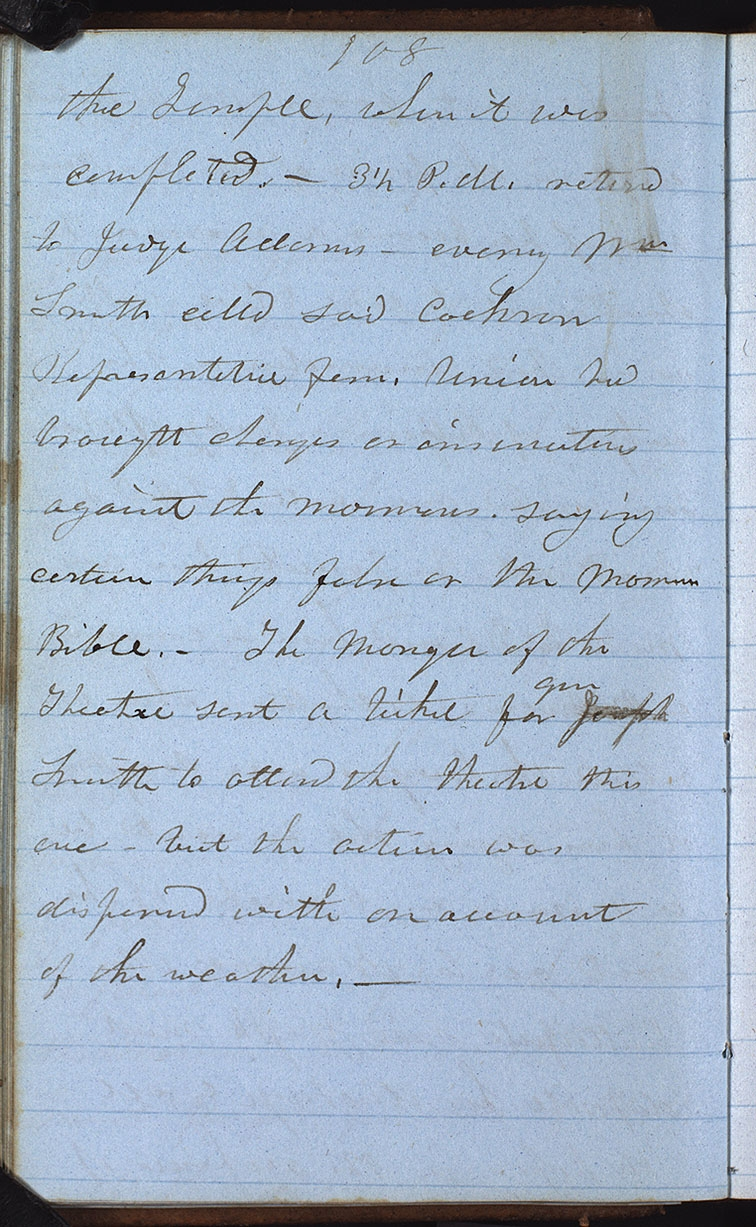 108
the Temple, when it was
completed. — 3½ P.M. retird
to Judge Adams — eveng Wm
Smith calld said Cochron
Representative from Union had
brought charges or insinuations
against the mormons. saying
certain things false on the Mormon
Bible. — The Manger of the
Theatre sent a ticket for gen Joseph
Smith to attend the theatre this
eve — but the action was
dispensed with on account
of the weather. —